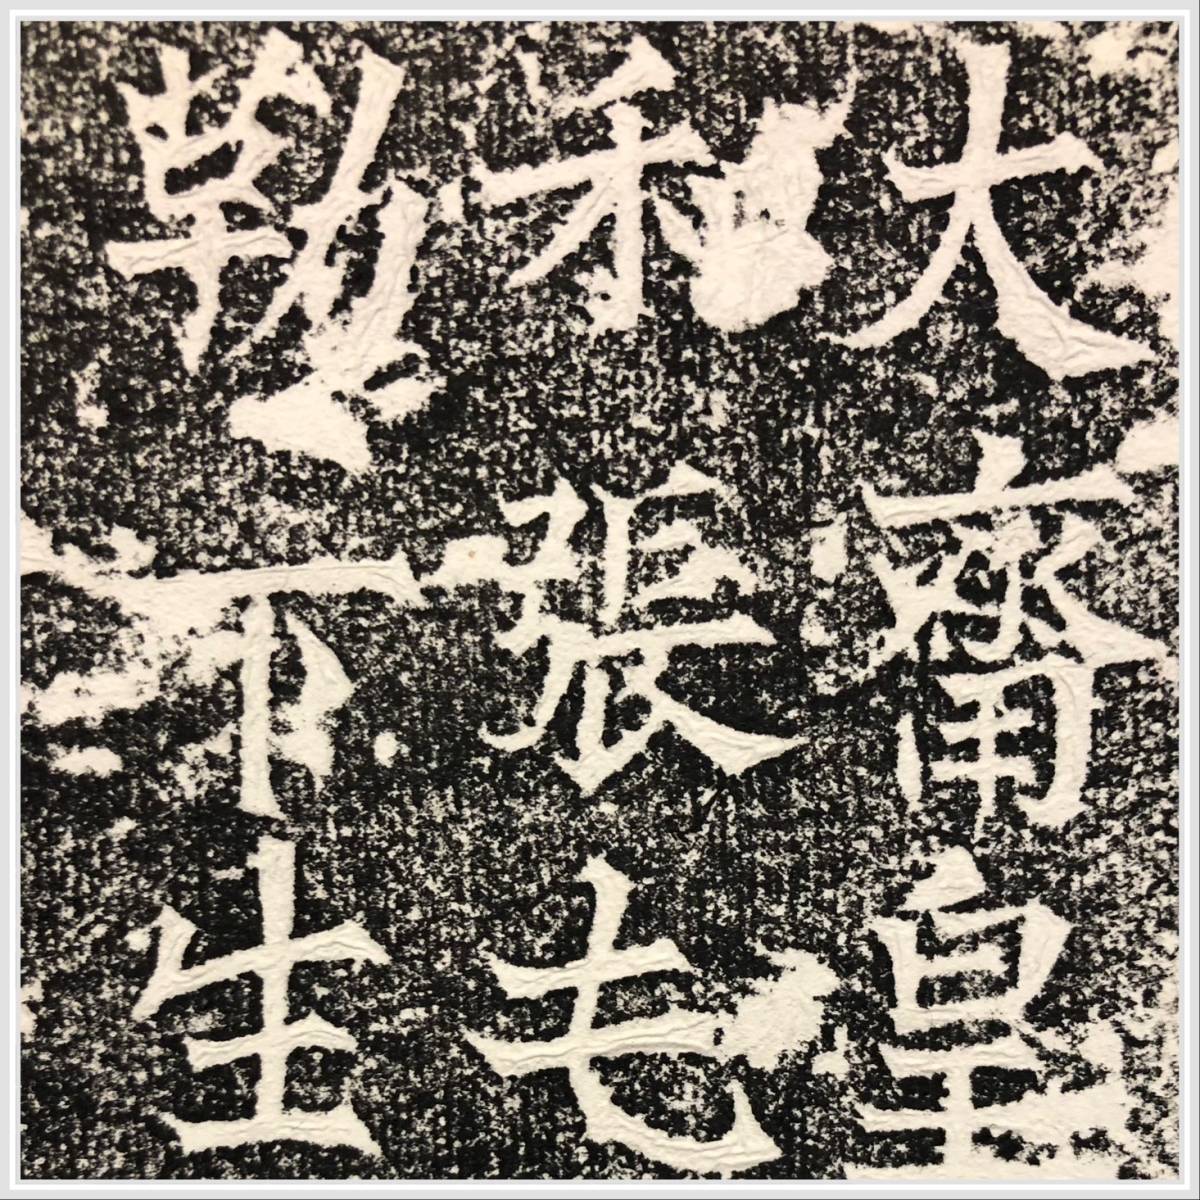 大齊皇
和張毛
勒下生